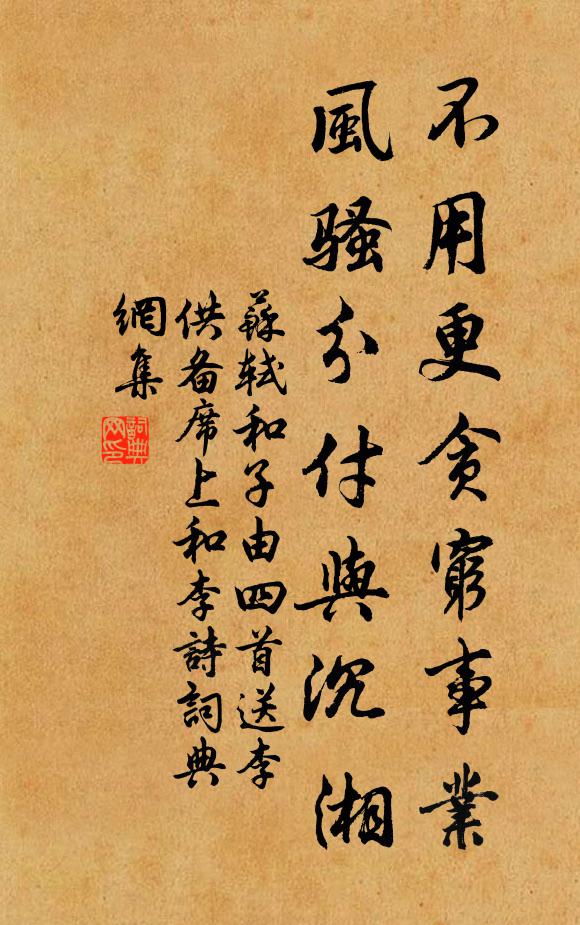 不用更貪窮事業
風騷分付與沉湘
蘇軾和子由四首送李
供备席上和李詩詞典
網集
詞典
网印